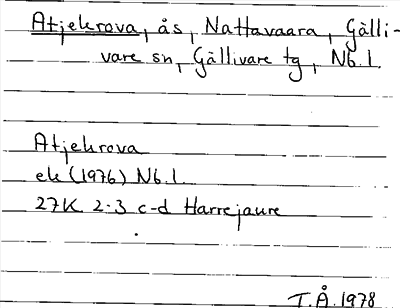 Atjekrova, ås, Nattavaara, Gälli-
vare sn, Gällivare tg, Nb.l.
Atjekrova
ek (1976) Nb.l.
27K 2-3 c-d Harrejaure
T.Å. 1978